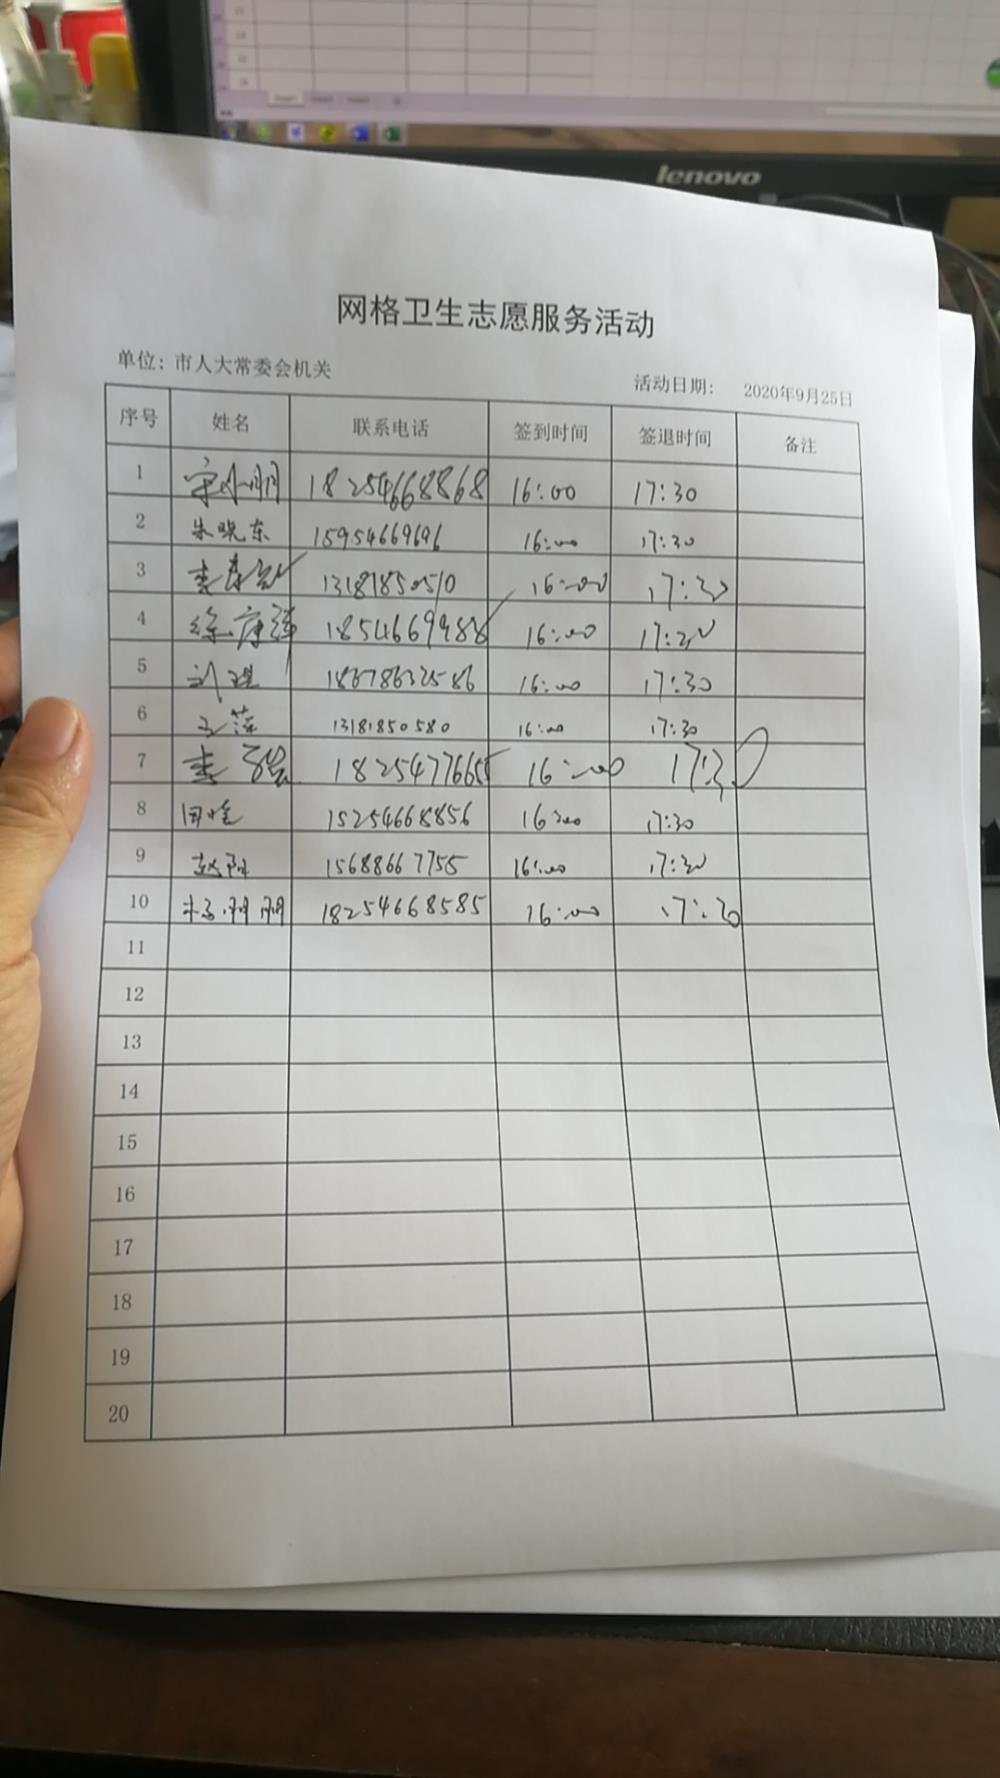 lenovo
网格卫生志愿服务活动
单位：市人大常委会机关 活动日期： 2020年9月25日
序号 姓名 联系电话 签到时间 签退时间 备注
1 宋小明 18254668868 16:00 17:30
2 朱晓东 15954669696 16:00 17:30
3 李 13181850510 16:00 17:30
4 徐 16:00 17:30
5 刘 18678632586 16:00 17:30
6 王萍 13181850580 16:00 17:30
7 李 1825477665 16:00 17:30
8 田 15254668856 16:00 17:30
9 赵阳 15688667755 16:00 17:30
10 杨丽丽 18254668585 16:00 17:30
11
12
13
14
15
16
17
18
19
20